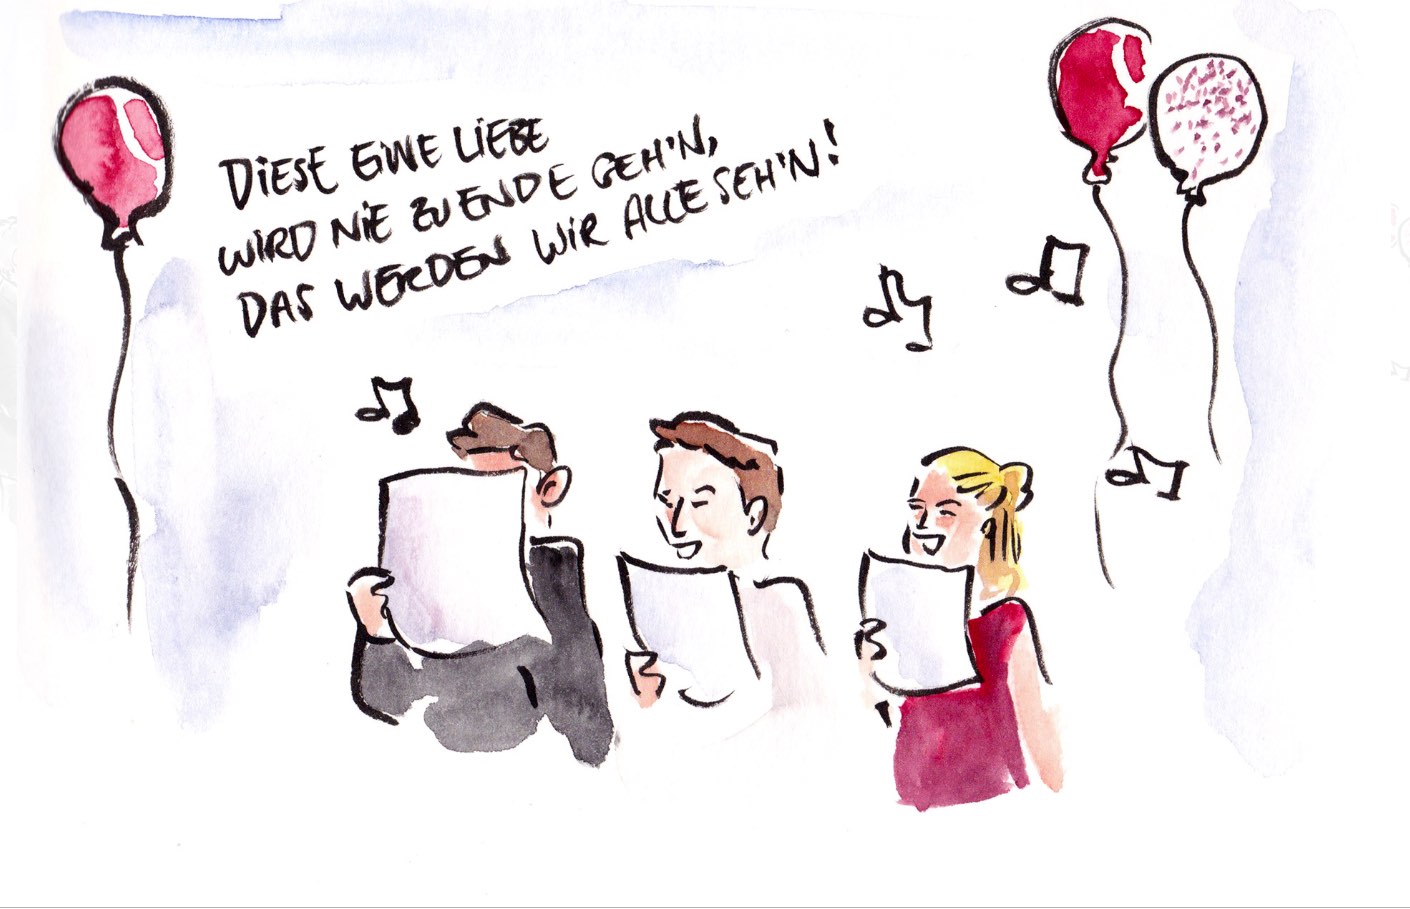 DIESE EINE LIEBE
WIRD NIE ZU ENDE GEH'N,
DAS WERDEN WIR ALLE SEH'N!